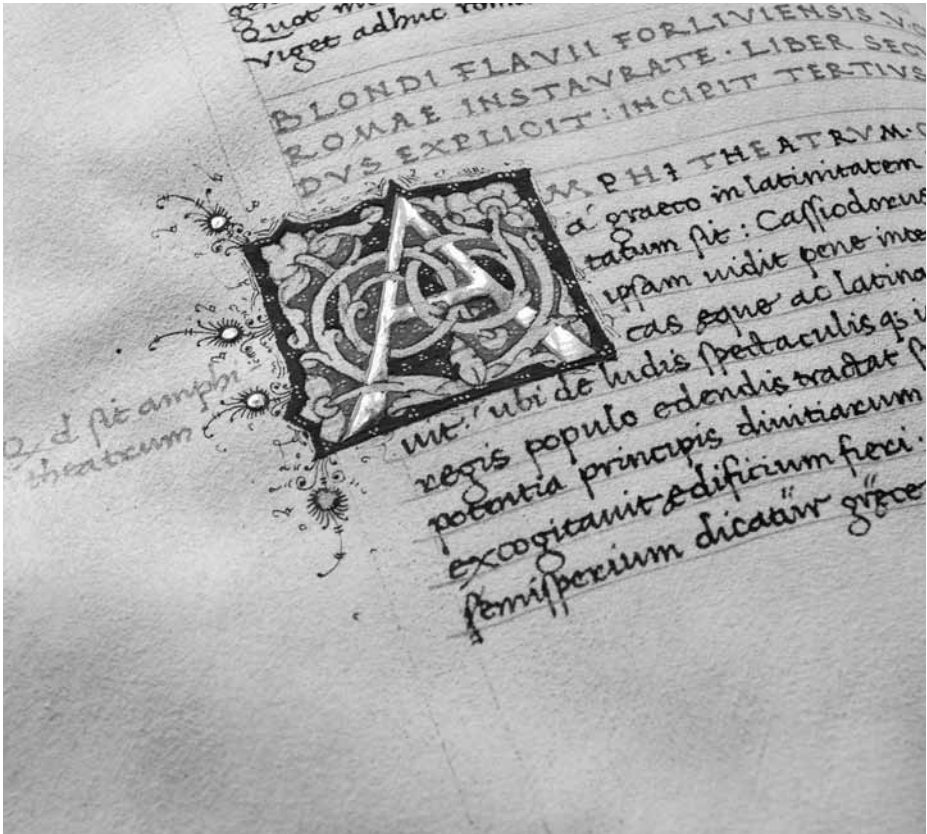 Quot
viget adhuc
BLONDI FLAVII FORLIVIENSIS
ROMAE INSTAVRATE · LIBER SECV
DVS EXPLICIT : INCIPIT TERTIVS
AMPHITHEATRVM ·
a graeco in latinitatem
tatum sit : Cassiodorus
ipsam uidit pene
cas eque ac latina
uit : ubi de ludis spectaculisqs
regis populo edendis tractat
potentia principis diuitiarum
excogitauit edificium fieri .
semisperium dicatur grece
Q d sit amphi
theatrum